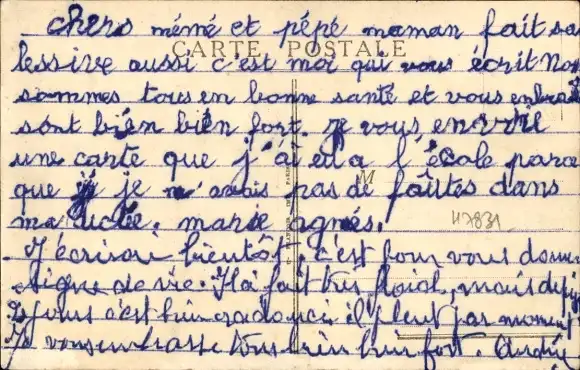 chers mémé et pépé maman fait sa
CARTE POSTALE
lessive aussi c'est moi qui vous écrit Nou
sommes tous en bonne santé et vous enbra
sont bien bien fort. je vous envoie
une carte que j'ai eu a l'école parce
que je n'avais pas de fautes dans
ma dictée. marie agnés.
47831
J'écrirai bientôt, c'est pour vous donner
signe de vie. Il a fait très froid, mais depuis
2 jours c'est bien radouci il pleut par moment
Je vous embrasse tous bien bien fort. Andrée